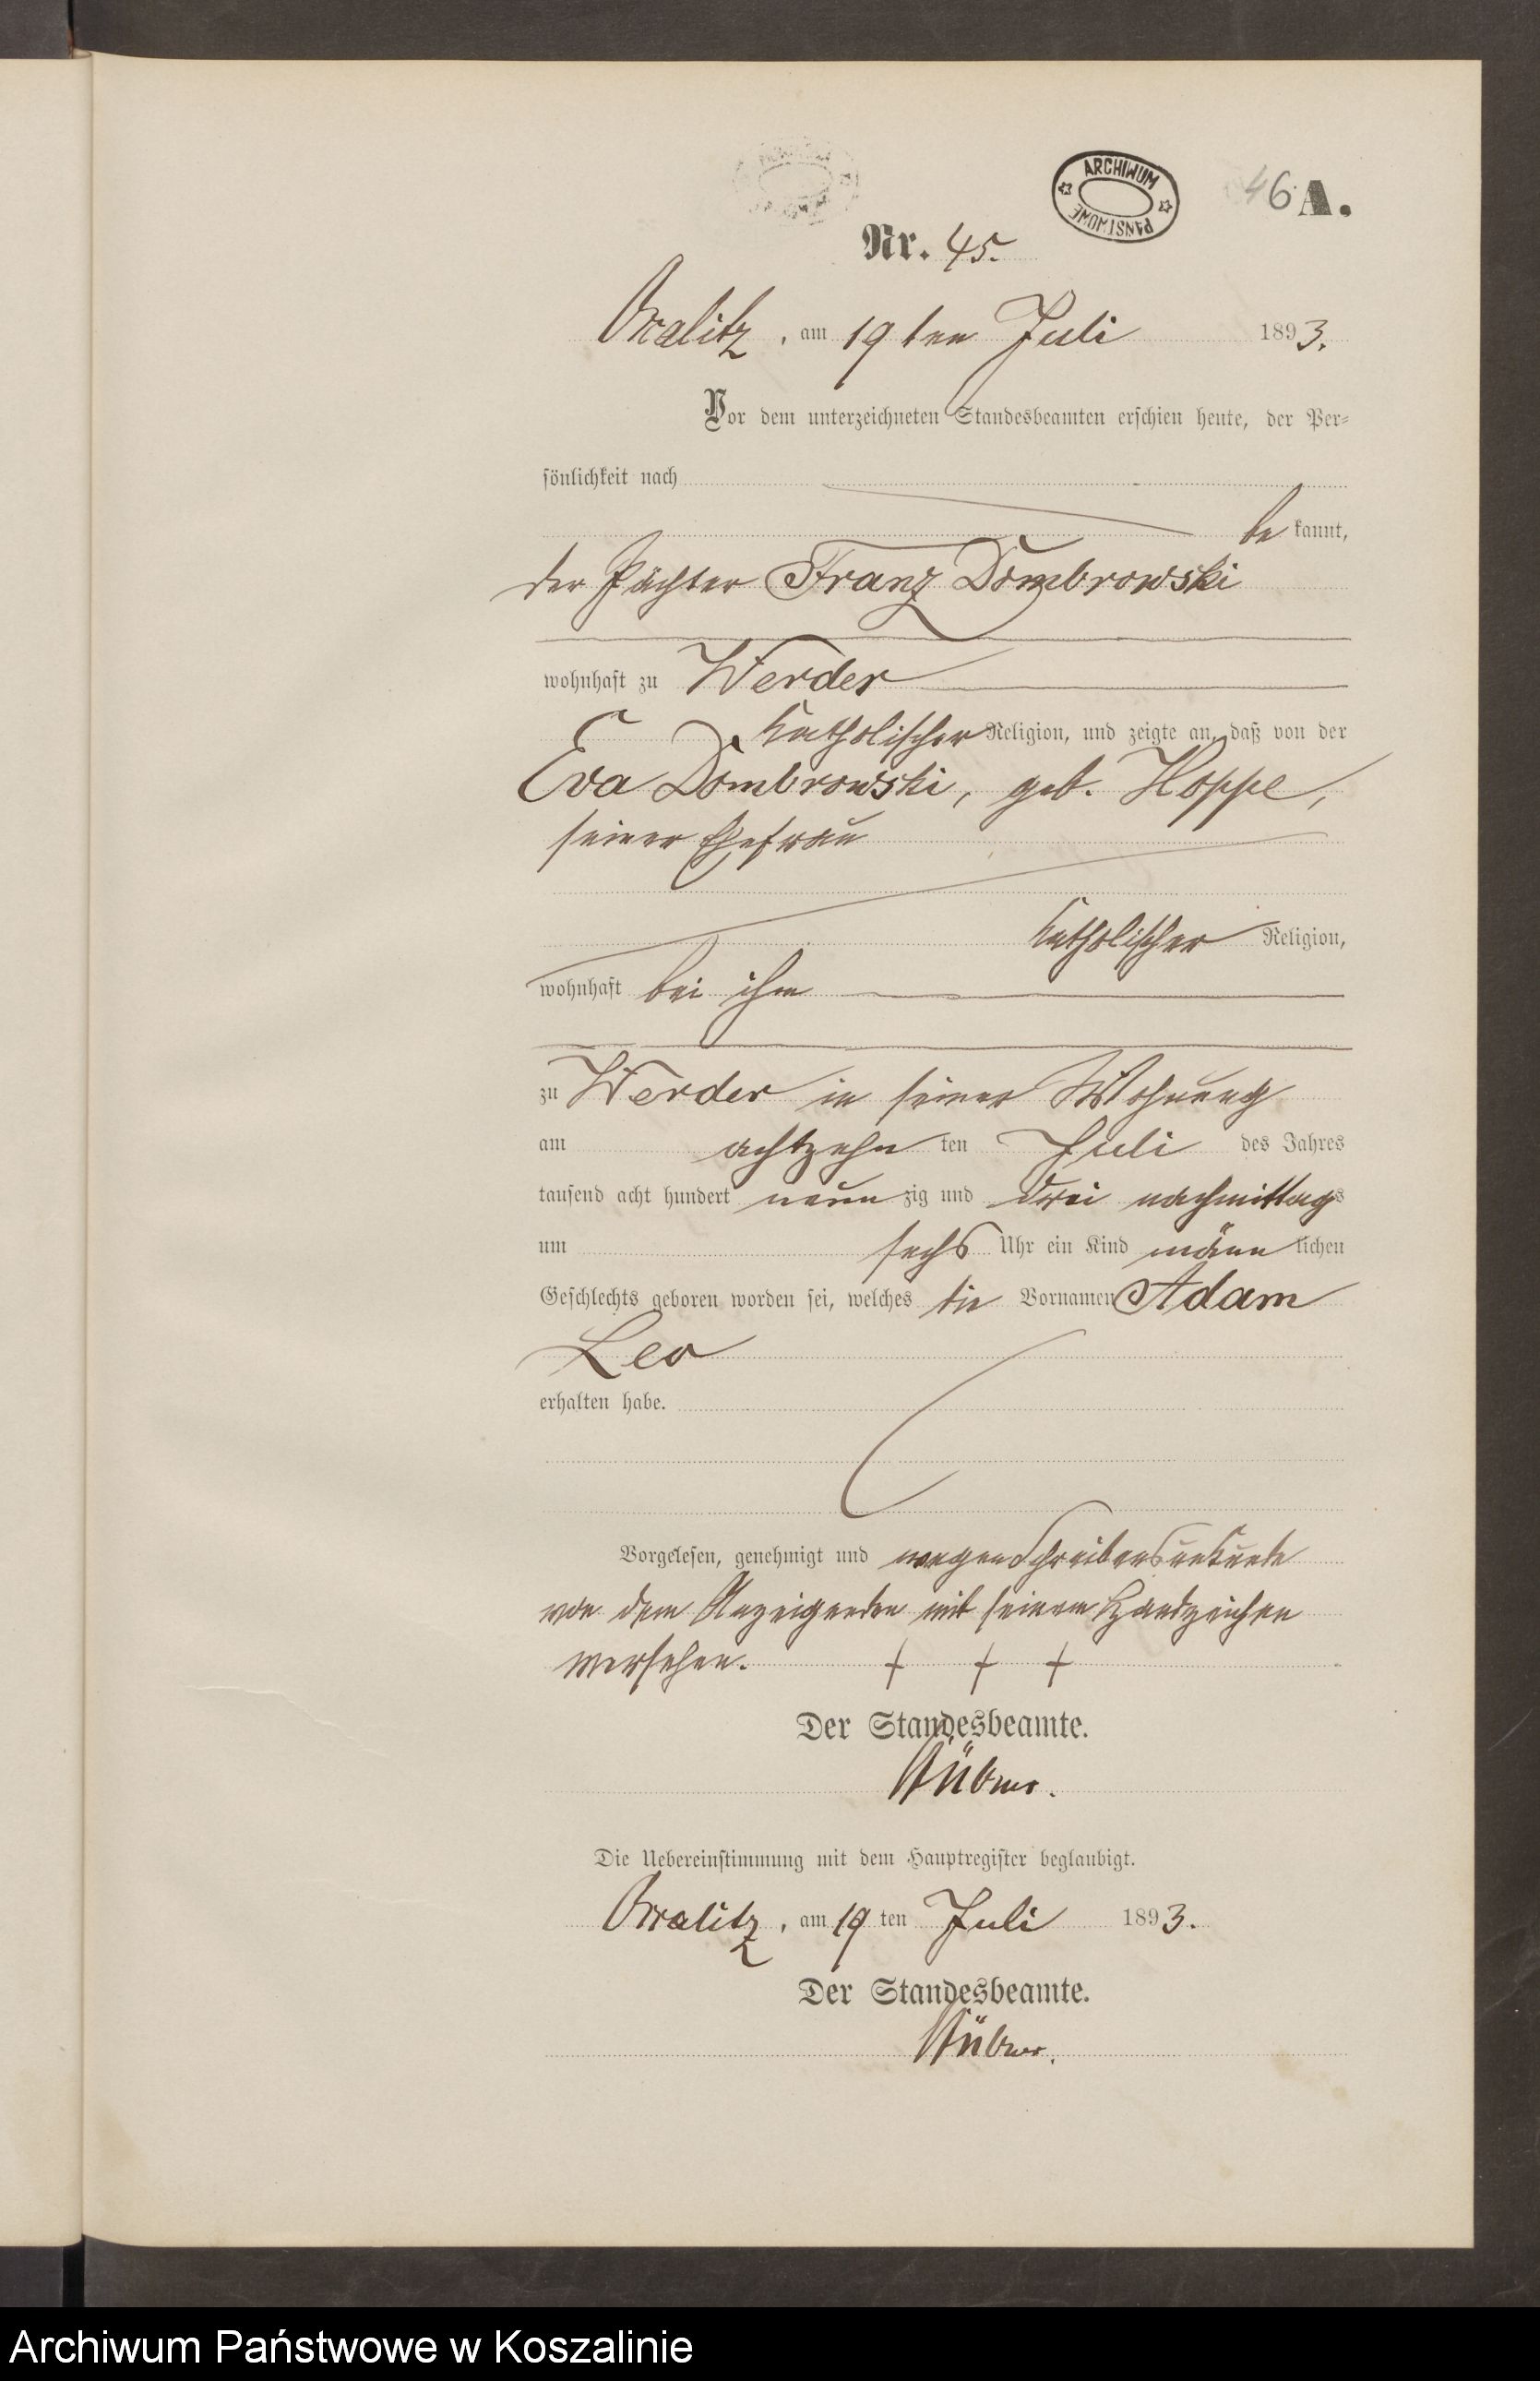 ARCHIWUM PAŃSTWOWE
46 A.
Nr. 45.
am 19ten Juli 1893.
Vor dem unterzeichneten Standesbeamten erschien heute, der Per-
sönlichkeit nach
be kannt,
der Pächter Franz Dombrowski
wohnhaft zu Werder
katholischer Religion, und zeigte an, daß von der
Eva Dombrowski, geb. Hoppe,
seiner Ehefrau
katholischer Religion,
wohnhaft bei ihm
zu Werder in seiner Wohnung
am achtzehn ten Juli des Jahres
tausend acht hundert neun zig und drei nachmittags
um sechs Uhr ein Kind männ lichen
Geschlechts geboren worden sei, welches die Vornamen Adam
Leo
erhalten habe.
Vorgelesen, genehmigt und wegen Schreibensunkunde
von dem Anzeigenden mit seinem Handzeichen
versehen. + + +
Der Standesbeamte.
Die Uebereinstimmung mit dem Hauptregister beglaubigt.
am 19 ten Juli 1893.
Der Standesbeamte.
Archiwum Państwowe w Koszalinie